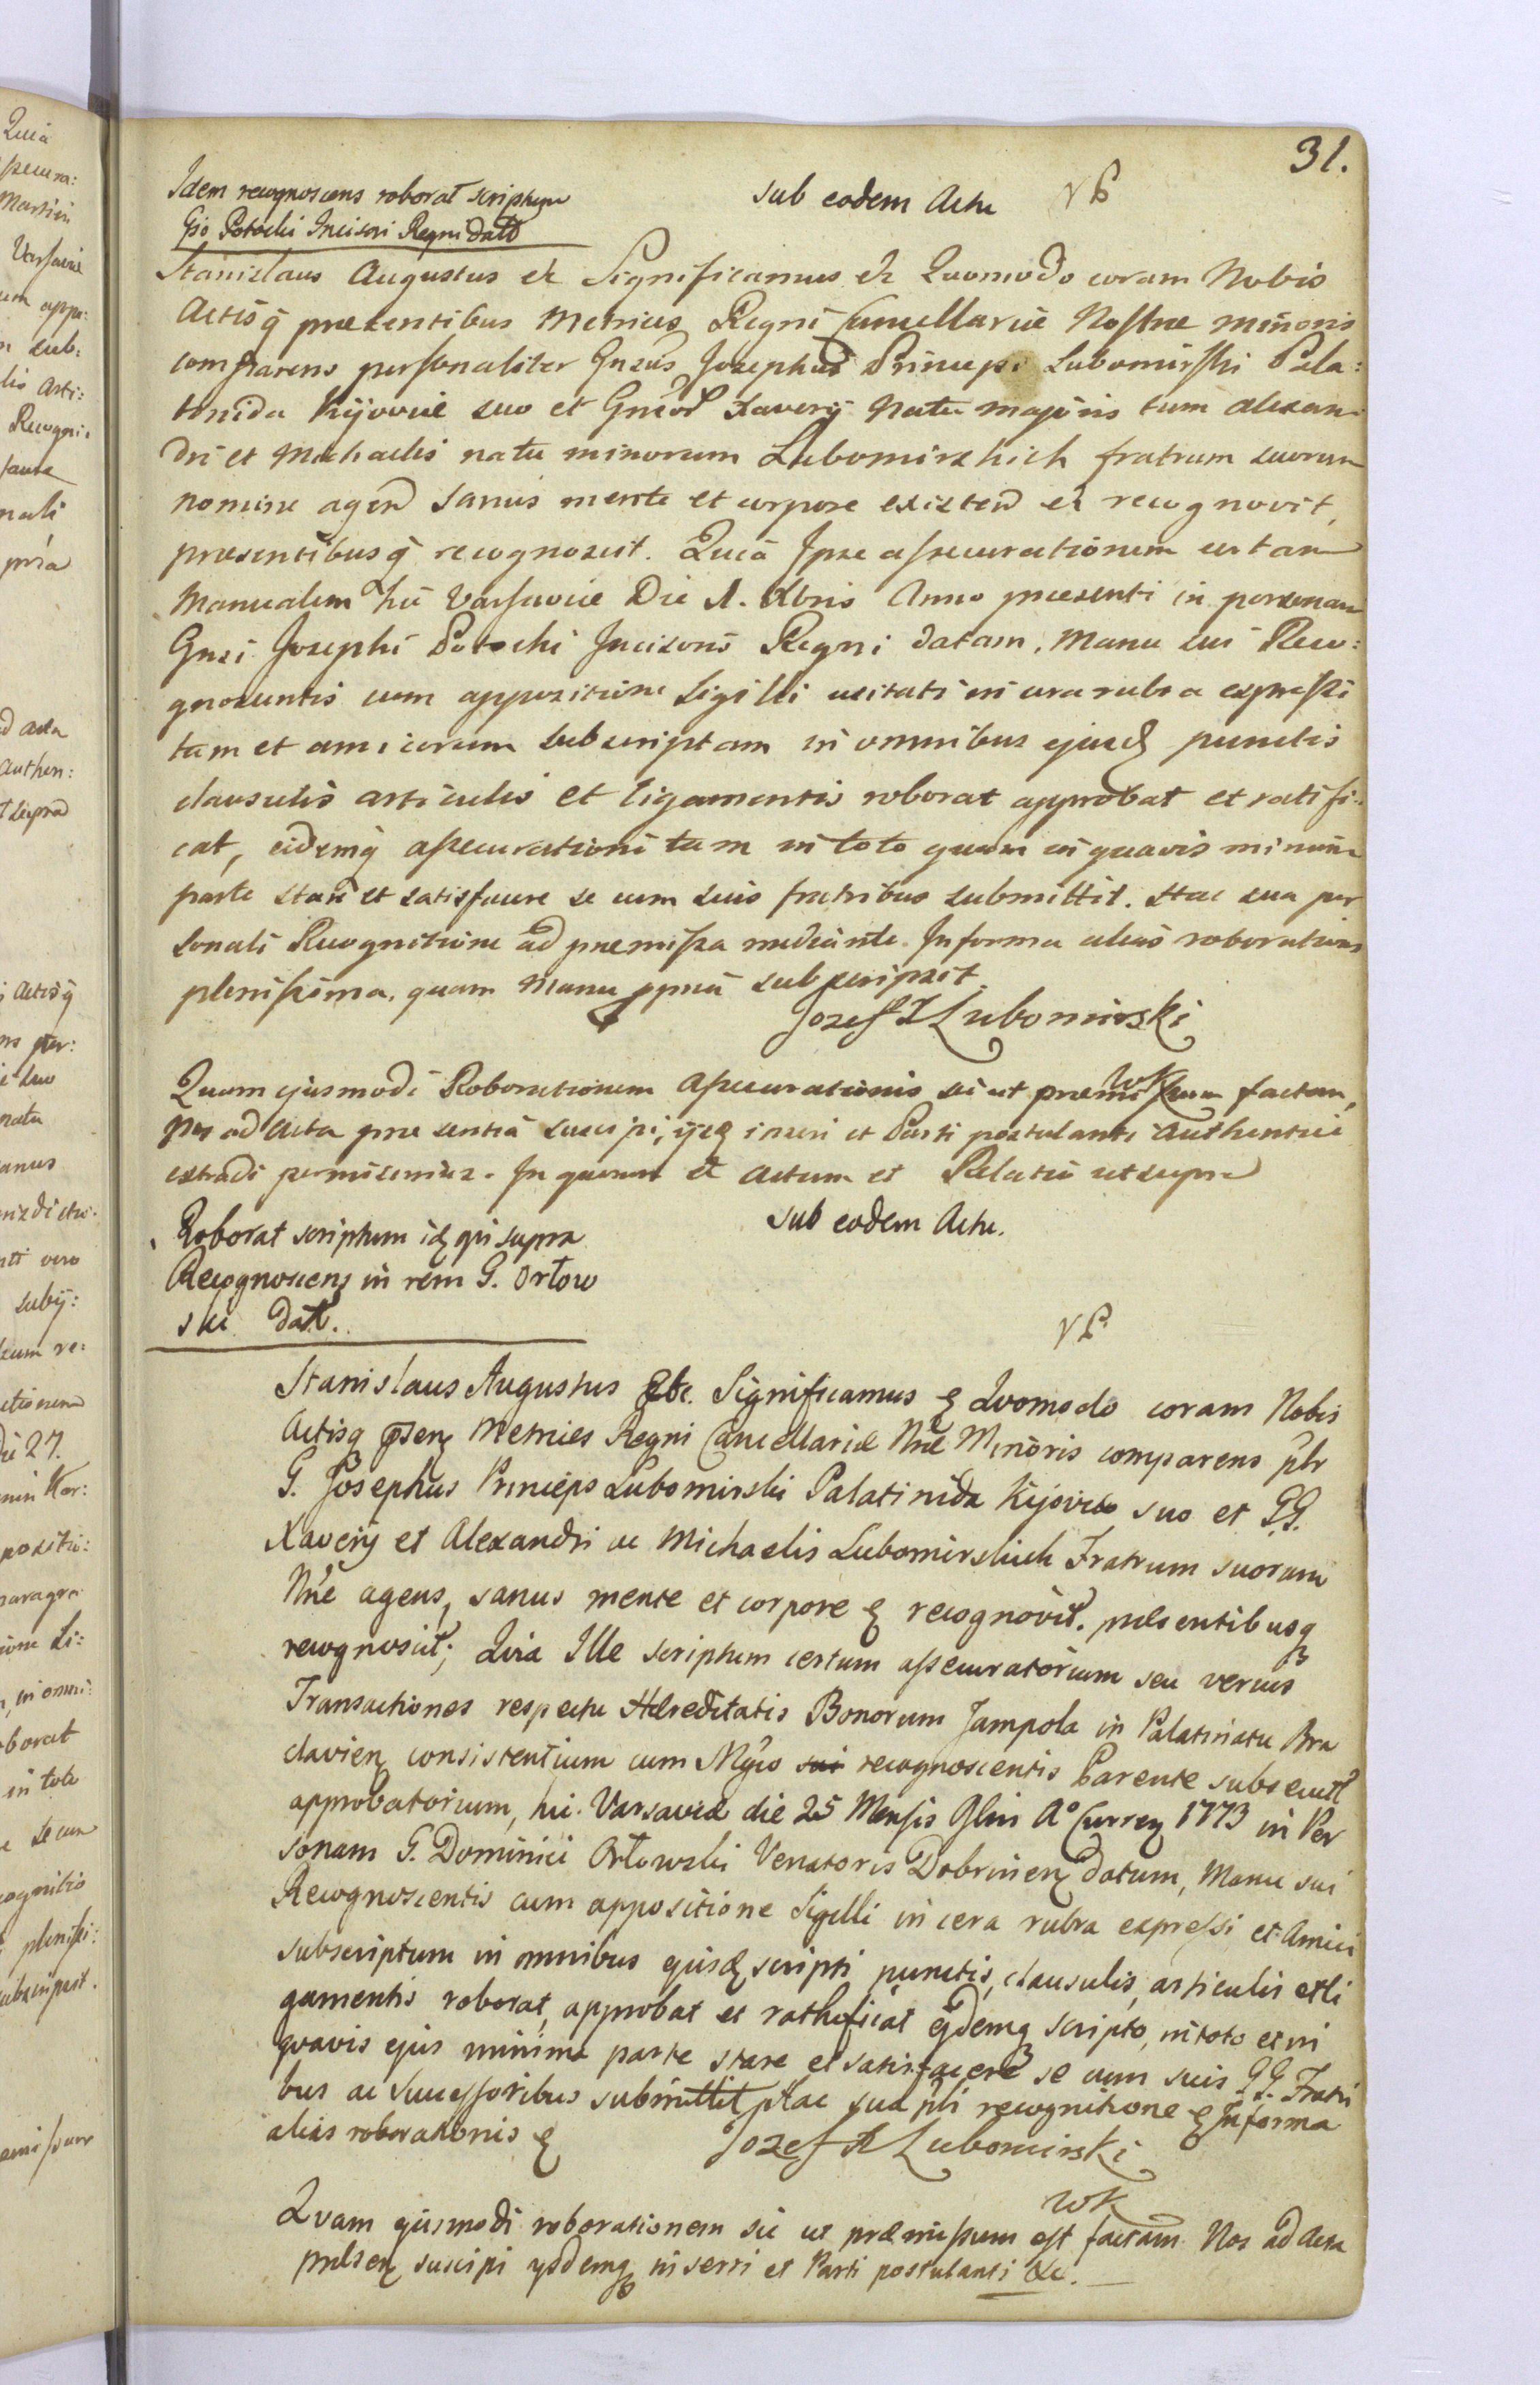 31.
Idem recognoscens roborat scriptum
Gso Potocki Incisori Regni dato
sub eodem Actu
Stanislaus Augustus et Significamus et Quomodo coram Nobis
Actisq̃ praesentibus Metrices Regni Cancellariæ Nostræ minoris
comparens personaliter Gnsus Josephus Princeps Lubomirski Pala:
tinida Kijoviæ suo et Gnsor Xaverij natu majoris tum Alexan
dri et Michaelis natu minorum Lubomirskich fratrum suorum
nomine agen sanus mente et corpore existen et recognovit,
praesentibusq̃ recognoscit. Quia Ipse assecurationem certam
Manualem hic Varsaviæ Die 1. Xbris Anno praesenti in personam
Gnsi Josephi Potocki Incisoris Regni datam, Manu sui Reco:
gnoscentis cum appositione Sigilli usitati in cera rubra expressi
tam et amicorum subscriptam in omnibus ejusd punctis
clausulis articulis et ligamentis roborat approbat et ratifi:
cat, eidemq̃ assecurationi tam in toto quam in quavis minima
parte stare et satisfacere se cum suis fratribus submittit. Hac sua per
sonali Recognitione ad praemissa mediante. In forma alias roborationis
plenissima, quam Manu ppria subscripsit.
Jozef X Lubomirski
wk
Quam ejusmodi Roborationem Assecurationis sicut praemissum factam,
Nos ad Acta praesentia suscipi, ijsq inseri et Parti postulanti authentice
extradi permisimus. In quorum et Actum et Relatio ut supra
Roborat scriptum id qui supra
Recognoscens in rem G. Orłow
ski dat.
sub eodem Actu.
Stanislaus Augustus Etc. Significamus & Quomodo coram Nobis
Actisq praesen Metrices Regni Cancellariæ Nrae Minoris comparens plr
G. Josephus Princeps Lubomirski Palatinida Kijoviæ suo et G.G.
Xaverij et Alexandri ac Michaelis Lubomirskich Fratrum suorum
Nne agens, sanus mente et corpore & recognovit. praesentibusq
recognoscit; Quia Ille scriptum certum assecuratorium seu verius
Transactiones respectu Hæreditatis Bonorum Jampola in Palatinatu Bra
clavien consistentium cum Mgco sui recognoscentis Parente subsecut
approbatorium, hic Varsaviæ die 25 Mensis 9bris Aº Curren 1773 in Per
sonam G. Dominici Orłowski Venatoris Dobrinen datum, Manu sui
Recognoscentis cum appositione Sigilli in cera rubra expressi et Amici
subscriptum in omnibus ejusd scripti punctis, clausulis, articulis et li
gamentis roborat, approbat et rathificat ejdemq scripto, in toto et in
quavis ejus minima parte stare et satisfacere se cum suis G.G. Fratri
bus ac Successoribus submittit Hac sua pli recognitione & In forma
alias roborationis &
Jozef X Lubomirski
wk
Quam ejusmodi roborationem sic ut præmissum est factam Nos ad Acta
præsen suscipi ysdemq inserri et Parti postulanti &c.